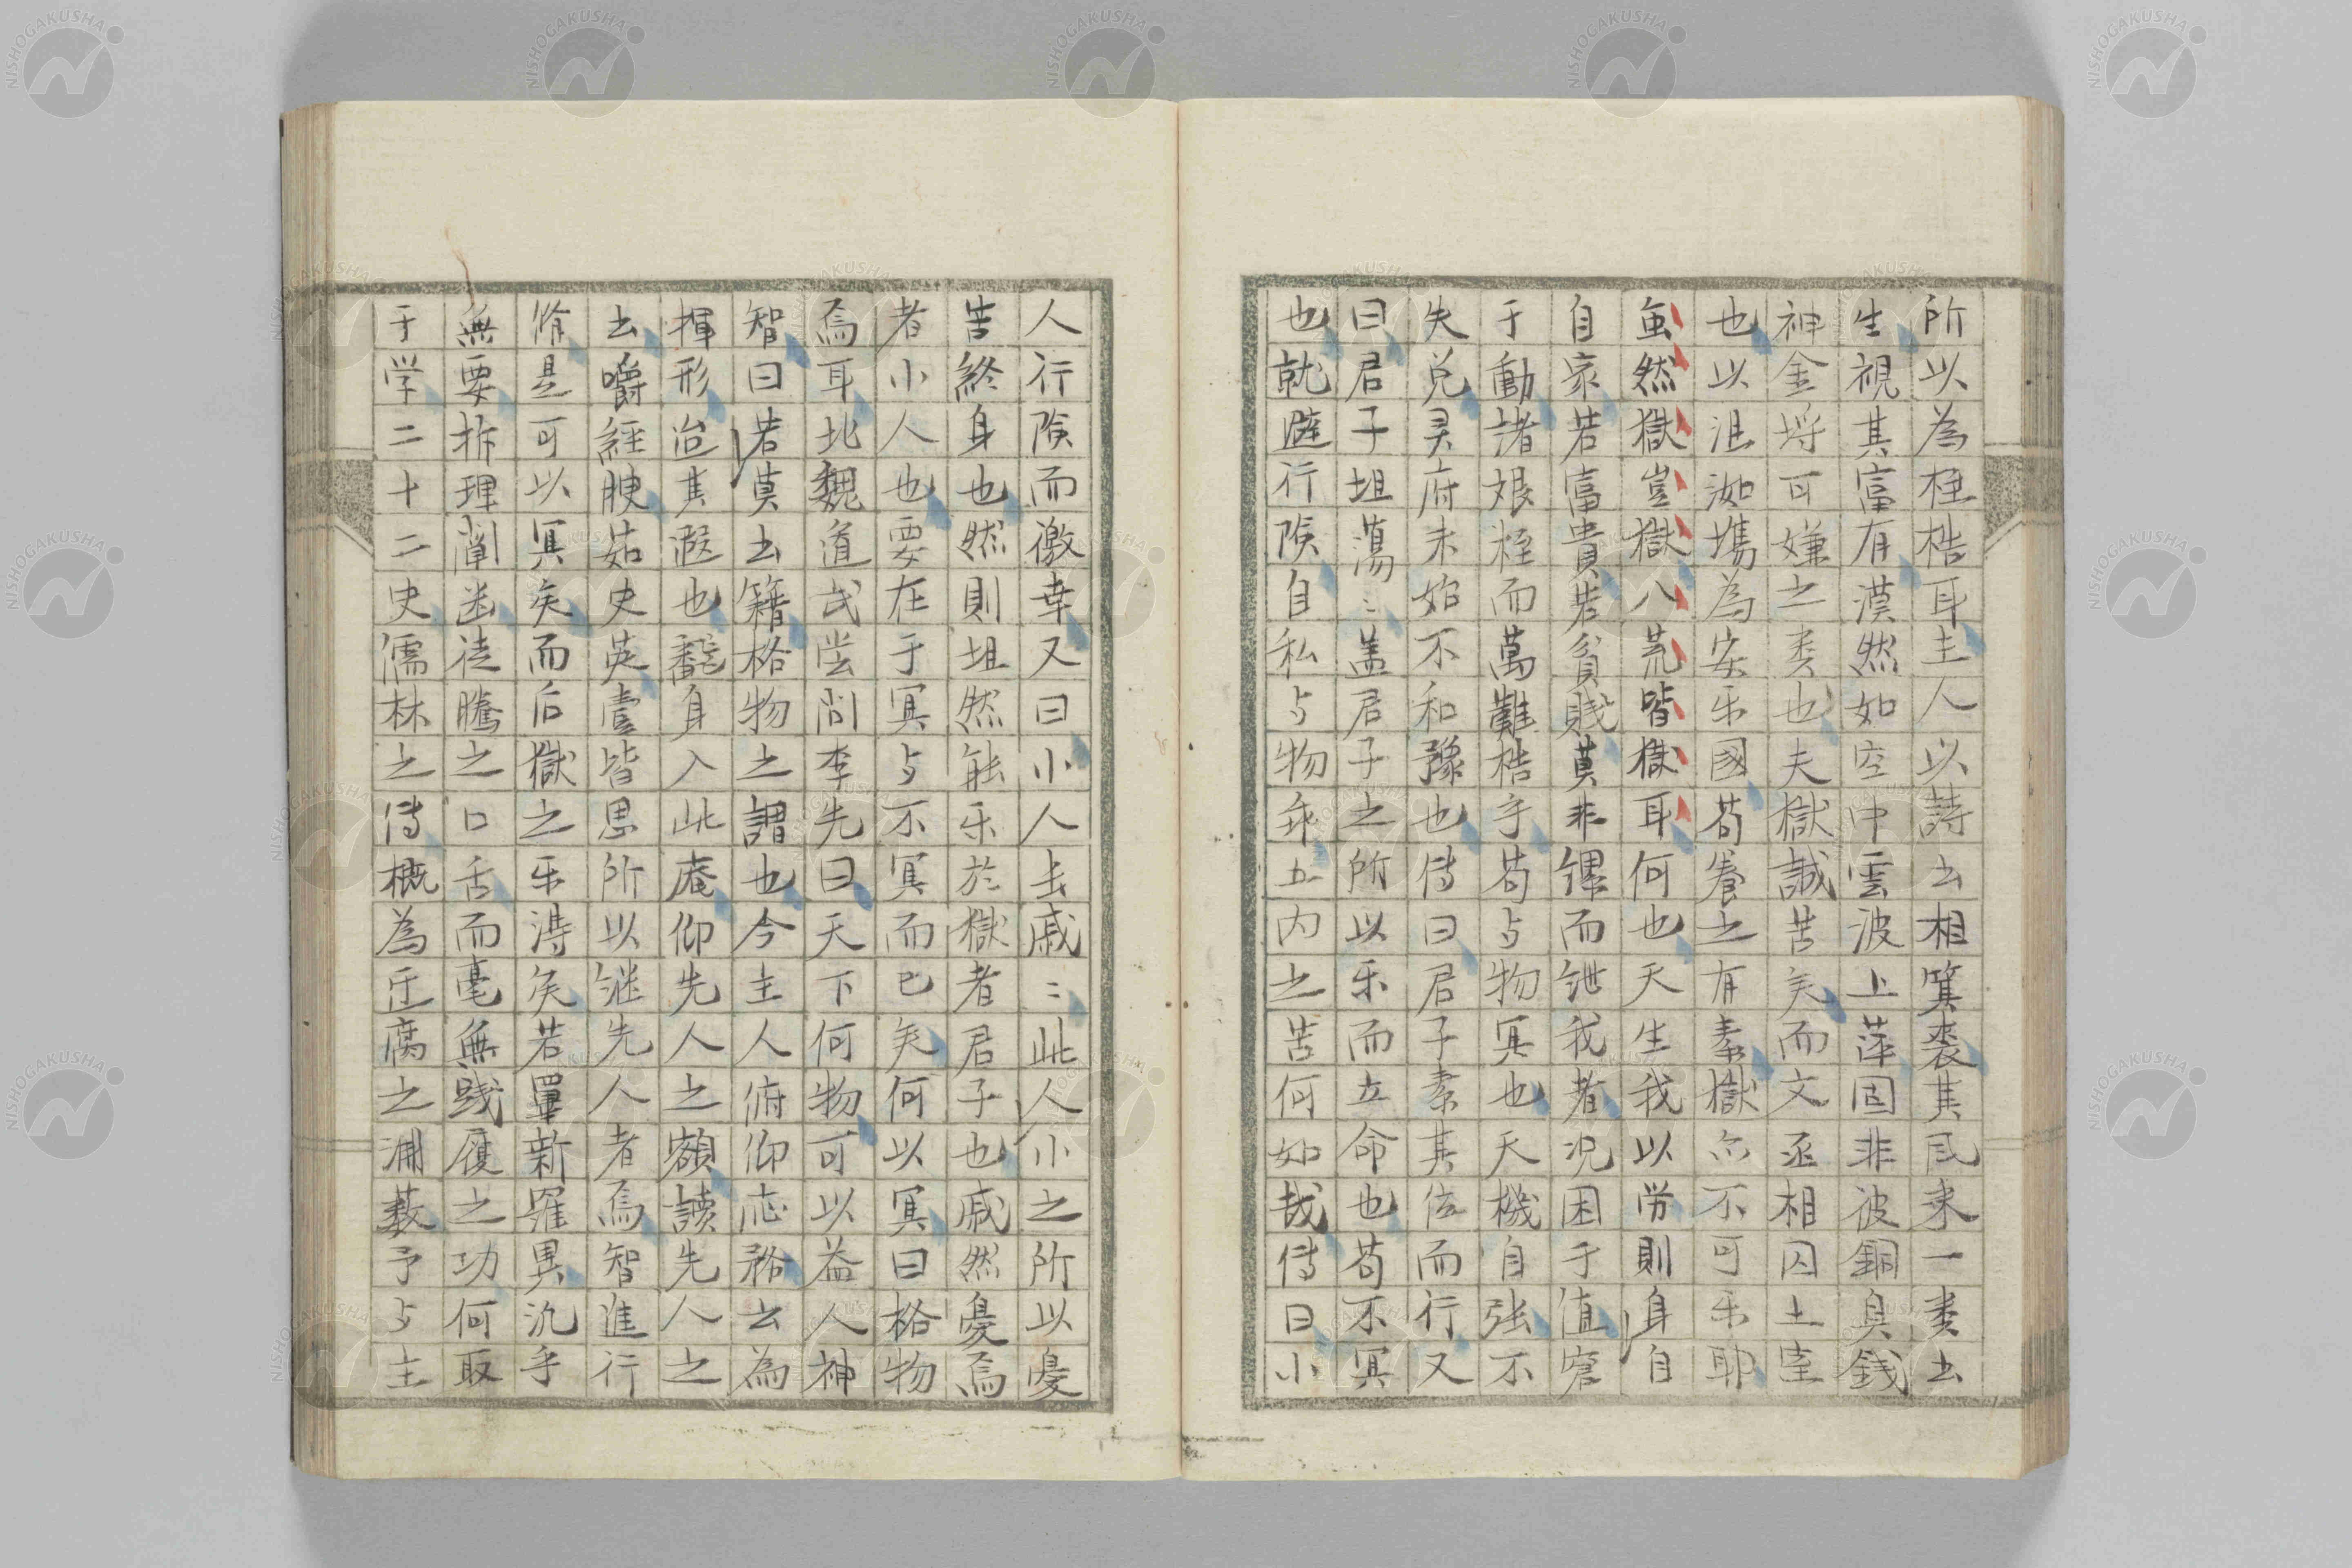 所以為桎梏耳主人以詩書相箕裘其風来一葉去
生視其富有漠然如空中雲波上萍固非彼銅臭銭
神金埒可嫌之类也夫獄誠苦矣而文丞相囚土室
也以沮洳塲為安乐國苟養之有素獄亦不可乐耶
虽然獄豈獄八荒皆獄耳何也天生我以労則身自
自家若富貴若貧賎莫非鏁而紲我者况困于值窘
于動諸艰桎而萬難梏乎苟与物冥也天機自强不
失兌灵府未始不和豫也傳曰君子素其位而行又
曰君子坦蕩〻盖君子之所以乐而立命也苟不冥
也就避行険自私与物乖五内之苦何如哉傳曰小
人行険而徼幸又曰小人長戚〻此人小之所以憂
苦終身也然則坦然能乐於獄者君子也戚然憂焉
者小人也要在于冥与不冥而已矣何以冥曰格物
焉耳北魏道武嘗問李先曰天下何物可以益人神
智曰若莫書籍格物之謂也今主人俯仰応務云為
揮形迨其遐也飜身入此庵仰先人之額讀先人之
書嚼經腴茹史英壹皆思所以継先人者焉智進行
脩是可以冥矣而后獄之乐淂矣若罼新羅異氿乎
無要柝理闡幽徒騰之口舌而毫無践履之功何取
于学二十二史儒林之傳概為迂腐之淵薮予与主